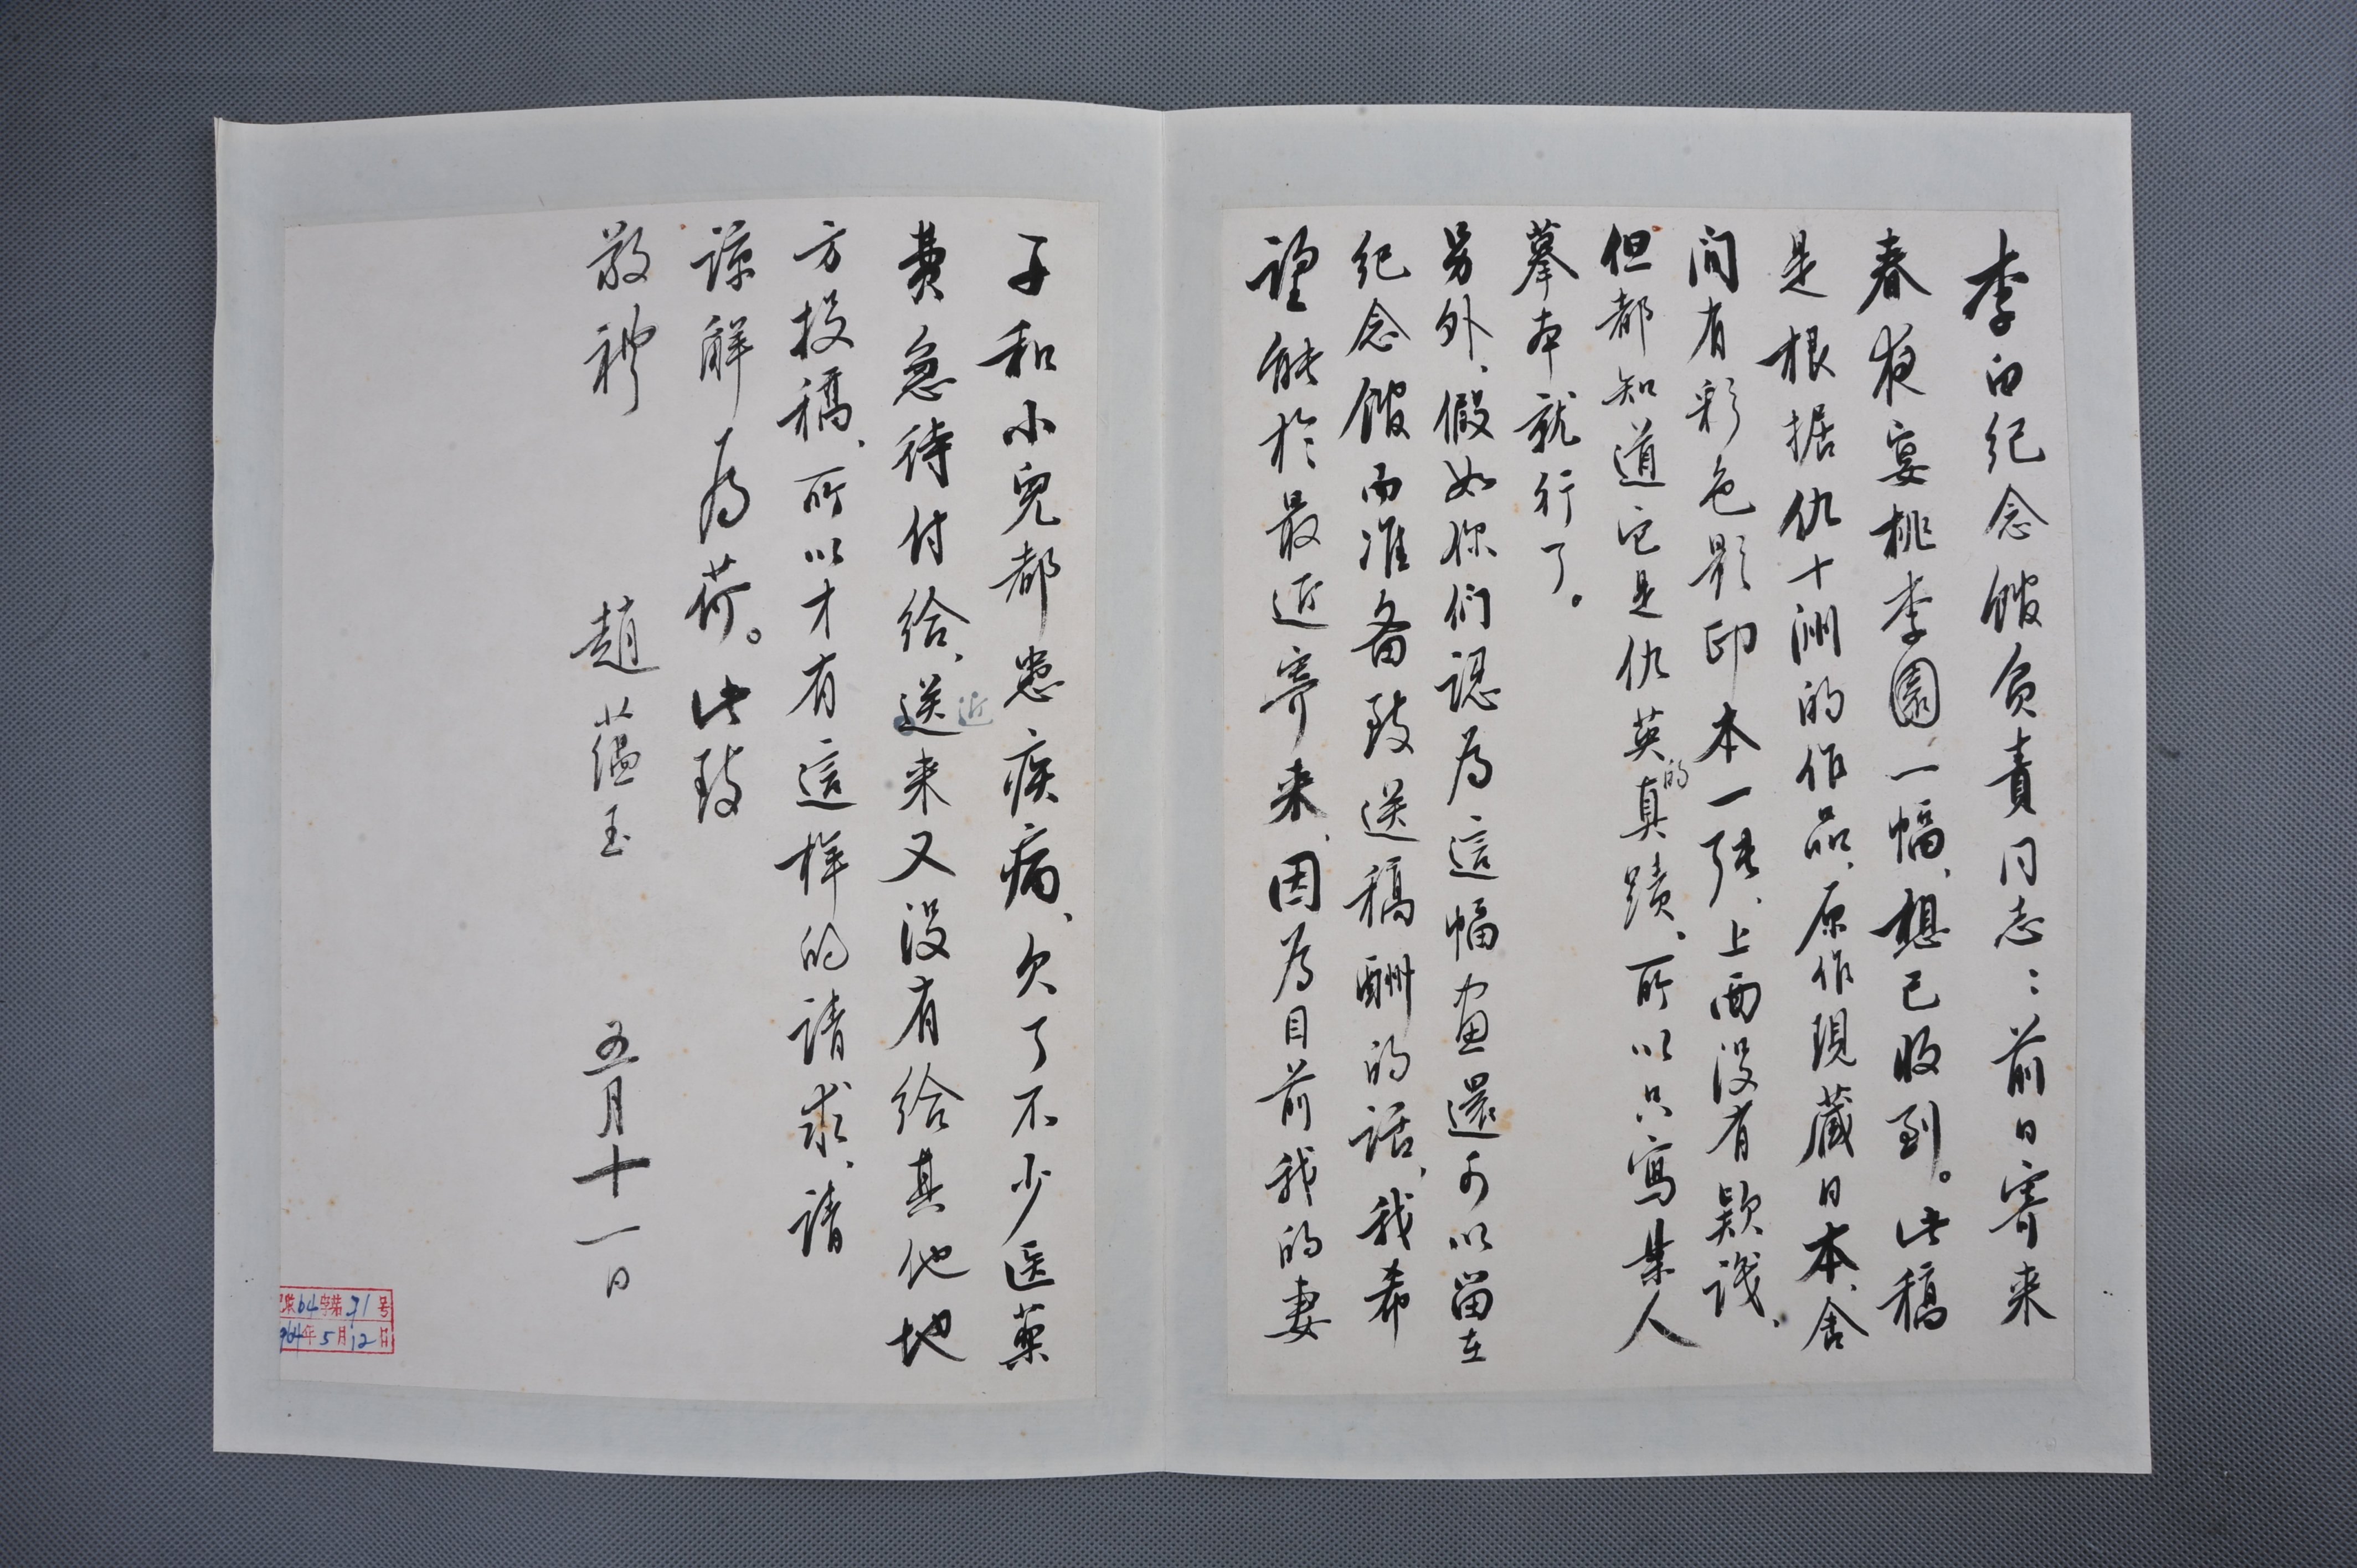 李白紀念館負責同志：前日寄来
春夜宴桃李園一幅、想已收到。此稿
是根据仇十洲的作品、原作現藏日本、舍
间有彩色影印本一张、上面没有款识、
但都知道它是仇英的真蹟、所以只寫某人
摹本就行了。
另外、假如你们認为這幅画還可以留在
纪念館而准备致送稿酬的话、我希
望能於最近寄来、因为目前我的妻
子和小兒都患疾病、欠了不少医药
費急待付给、近来又没有给其他地
方投稿、所以才有這样的请求、请
谅解为荷。此致
敬礼
趙蕴玉 五月十一日
64 字第71号
964年5月12日